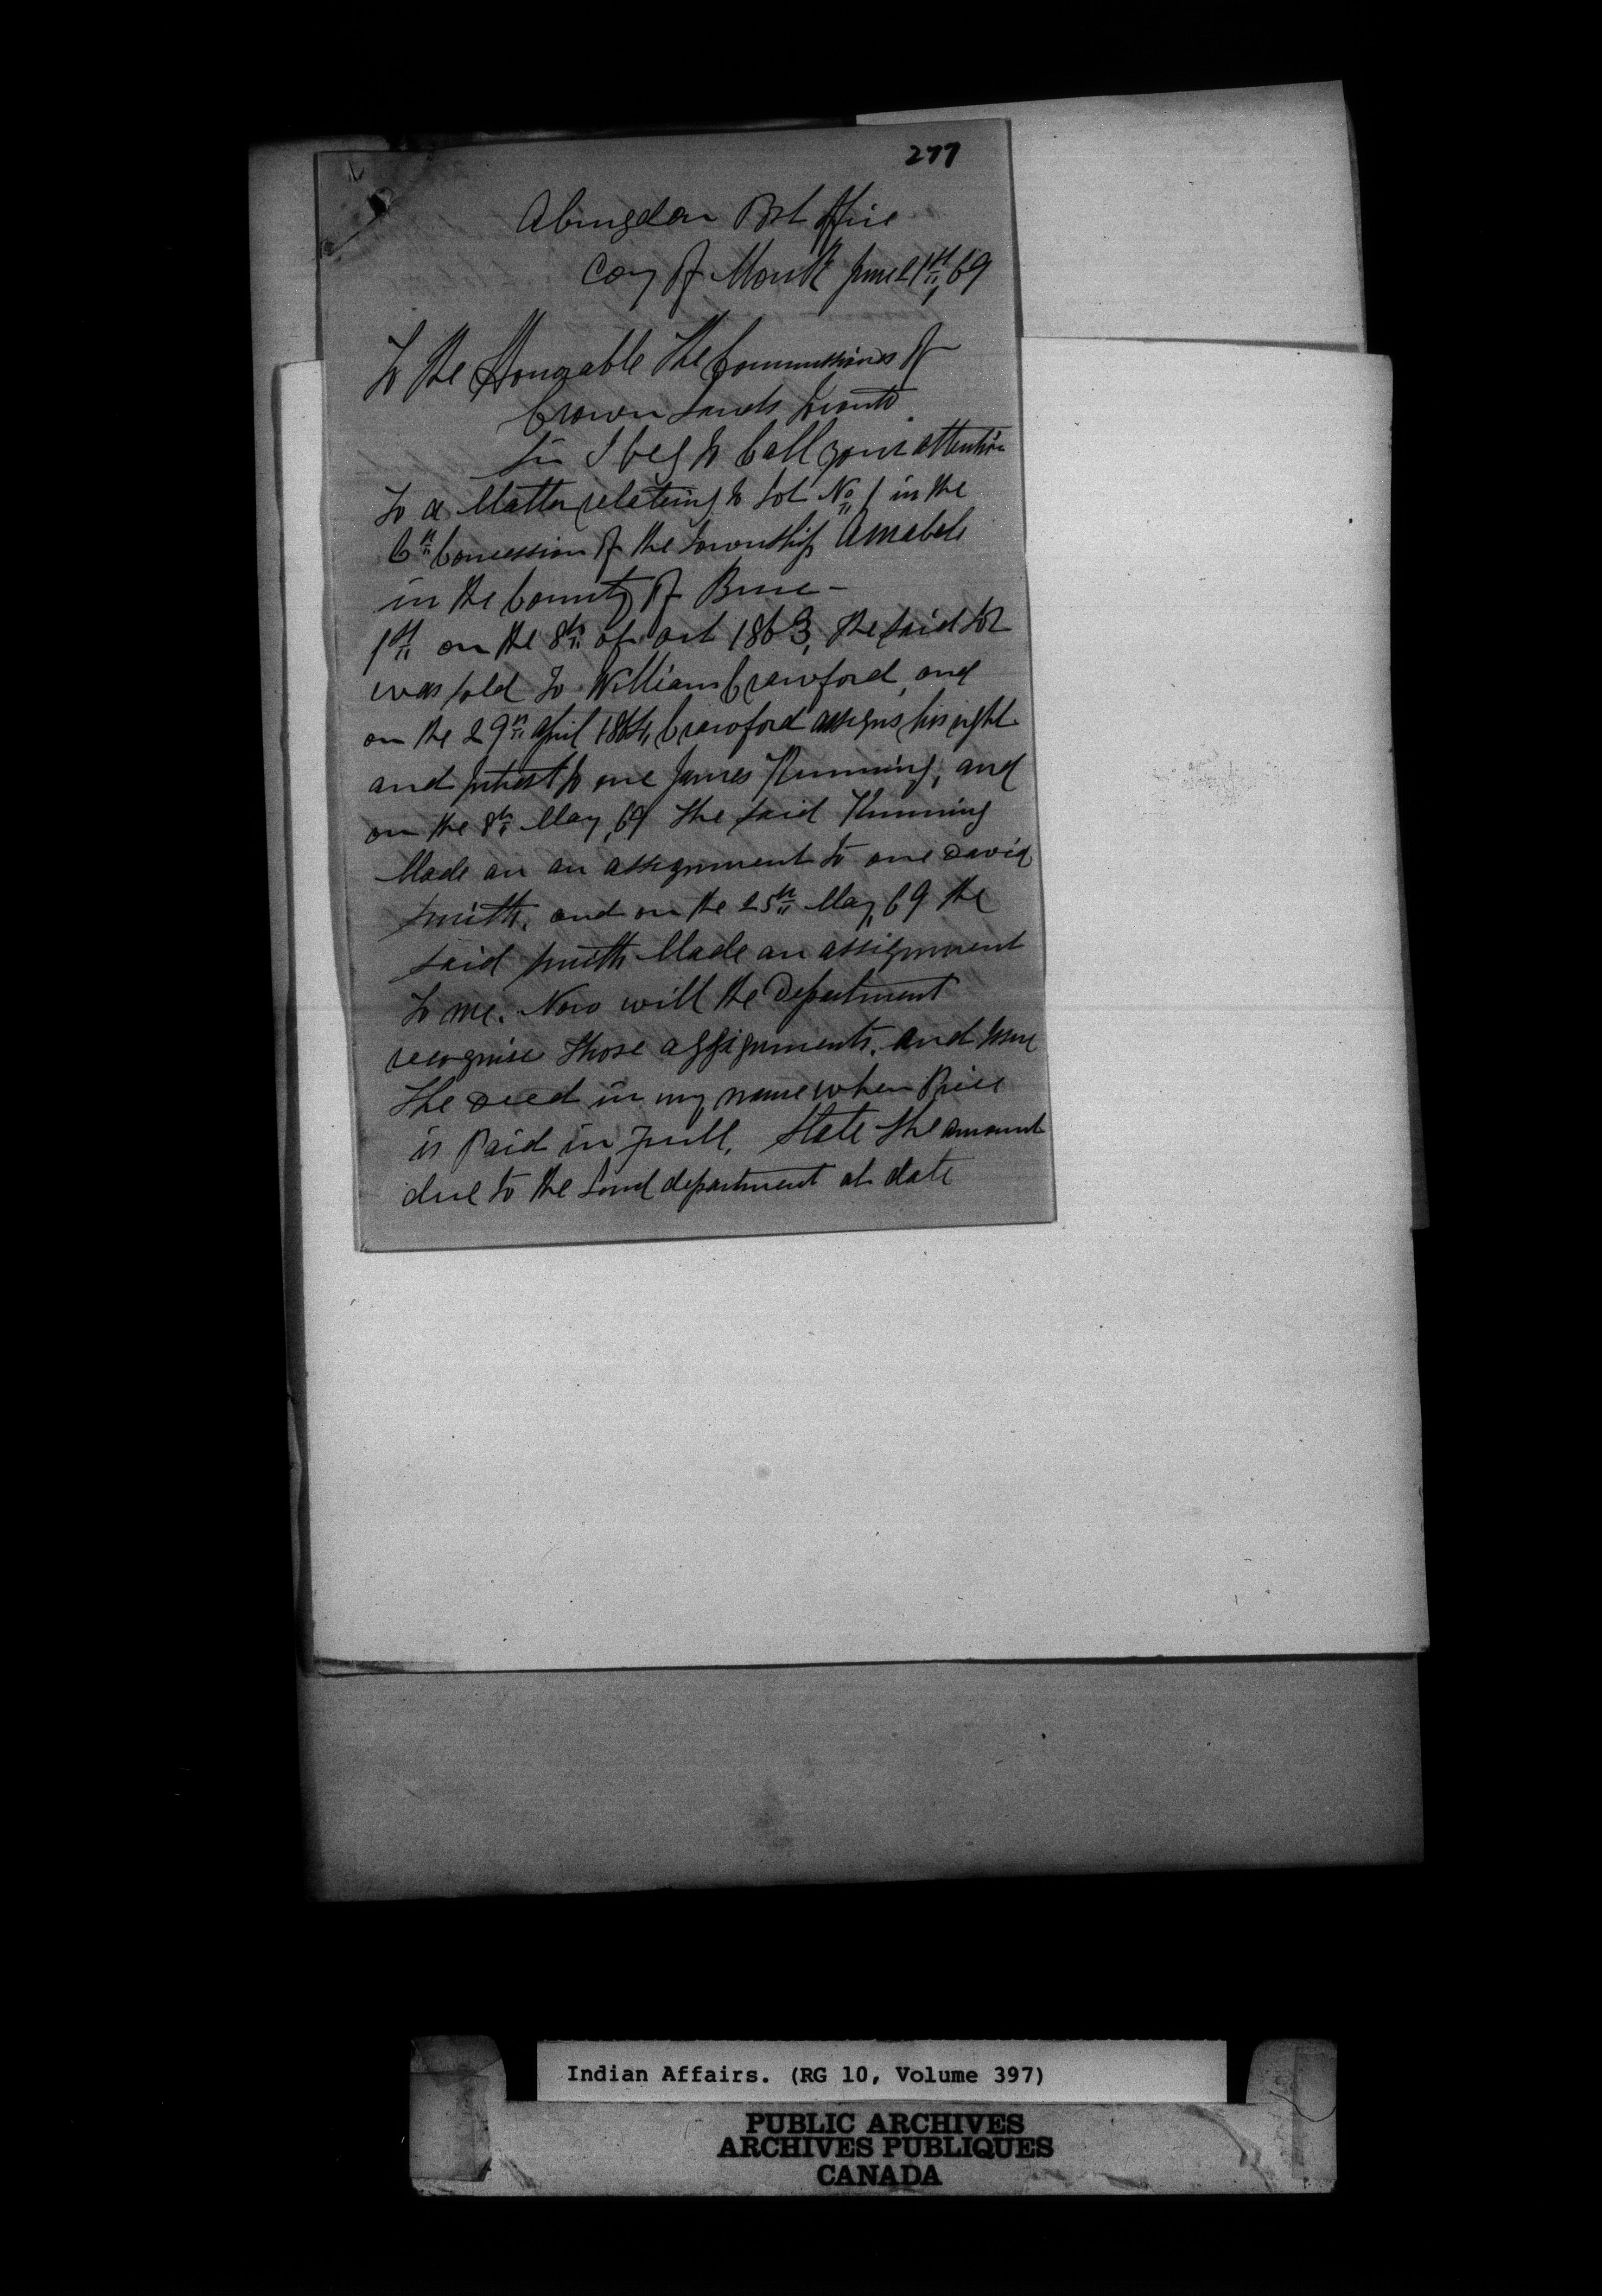 277
Abingdon Post Office
Coy of Monck June 21st 69
To the Honorable The Commissioner of
Crown Lands Toronto.
Sir I beg to Call your attention
To a Matter relateing to Lot No 1 in the
6th Concession of the Township Amabel
in the County of Bruce -
1st on the 8th of oct 1863, the said Lot
was sold to William Crawford, and
on the 29th April 1864, Crawford assigns his right
and Intrest to one James Kimming, and
on the 8th May, 69 the said Kimming
Made an an assignment to one David
Smith. and on the 25th May, 69 the
said Smith Made an assignment
to me. Now will the Department
recognise those assignments. and Issue
the Deed in my name when Price
is Paid in full, State the amount
due to the Land department at date
Indian Affairs. (RG 10, Volume 397)
PUBLIC ARCHIVES
ARCHIVES PUBLIQUES
CANADA